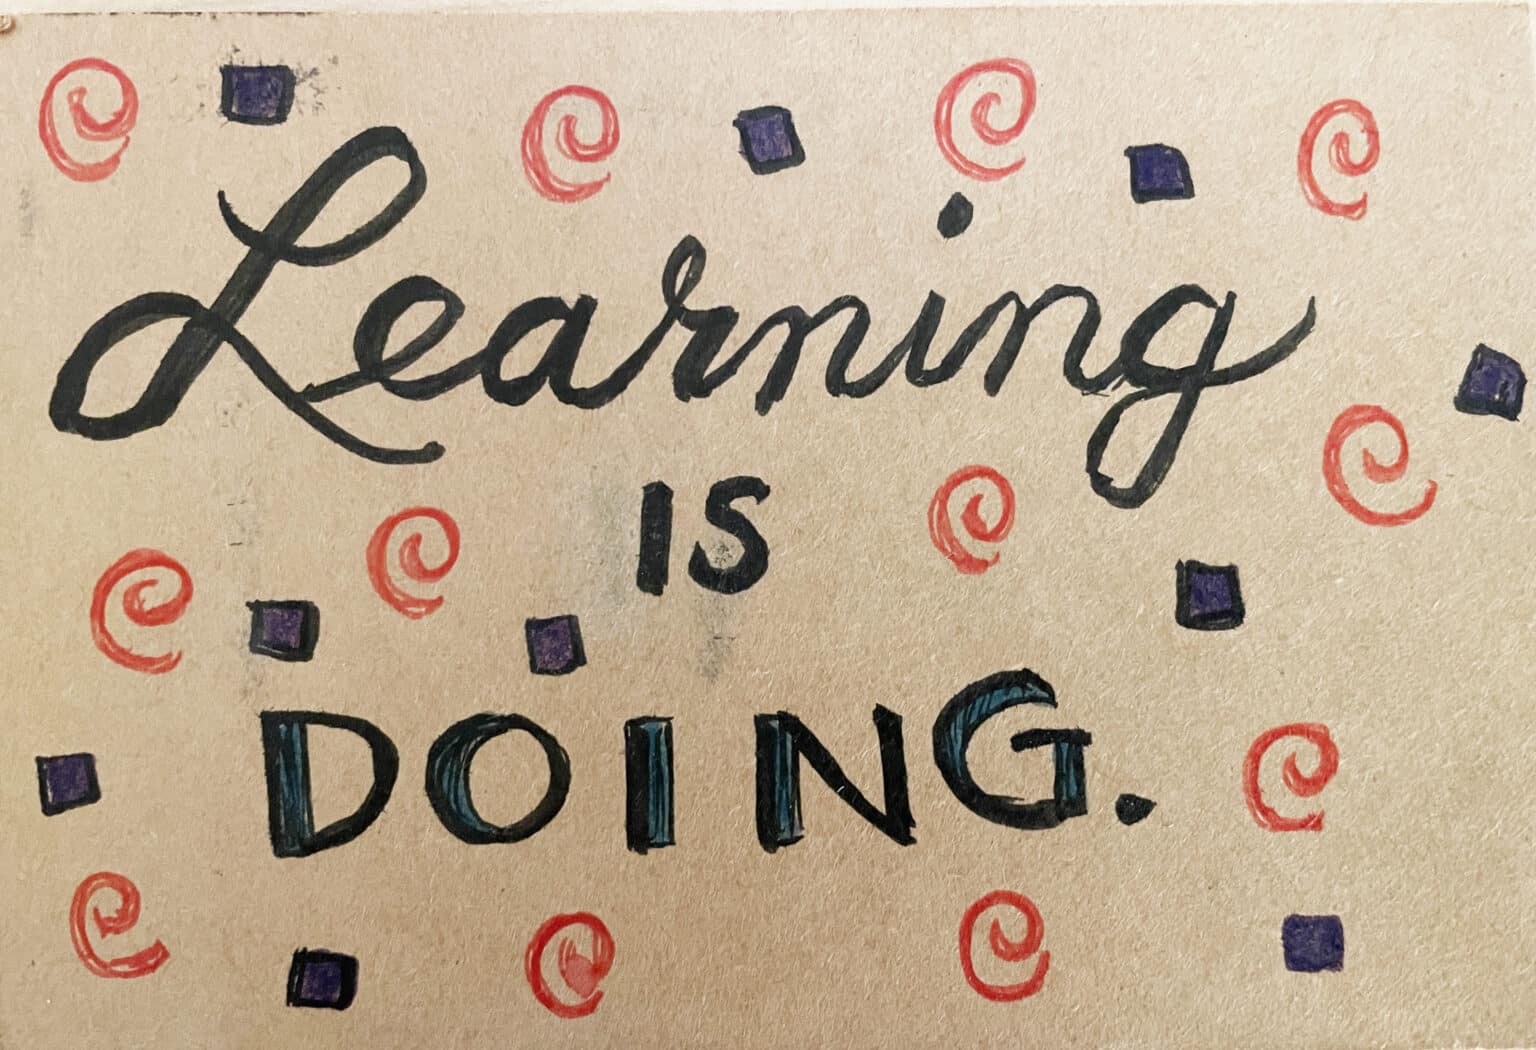 Learning
IS
DOING.